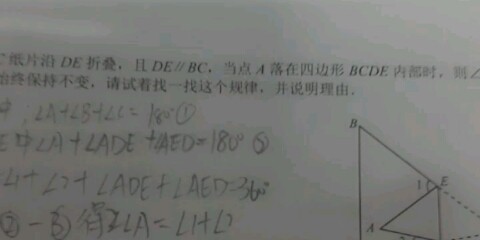 纸片沿 DE 折叠，且 DE∥BC，当点 A 落在四边形 BCDE 内部时，则∠
始终保持不变，请试着找一找这个规律，并说明理由.
中，∠A+∠B+∠C=180°①
中∠A+∠ADE+∠AED=180°②
∠1+∠2+∠ADE+∠AED=360°
②-③得2∠A=∠1+∠2
B
1
E
A